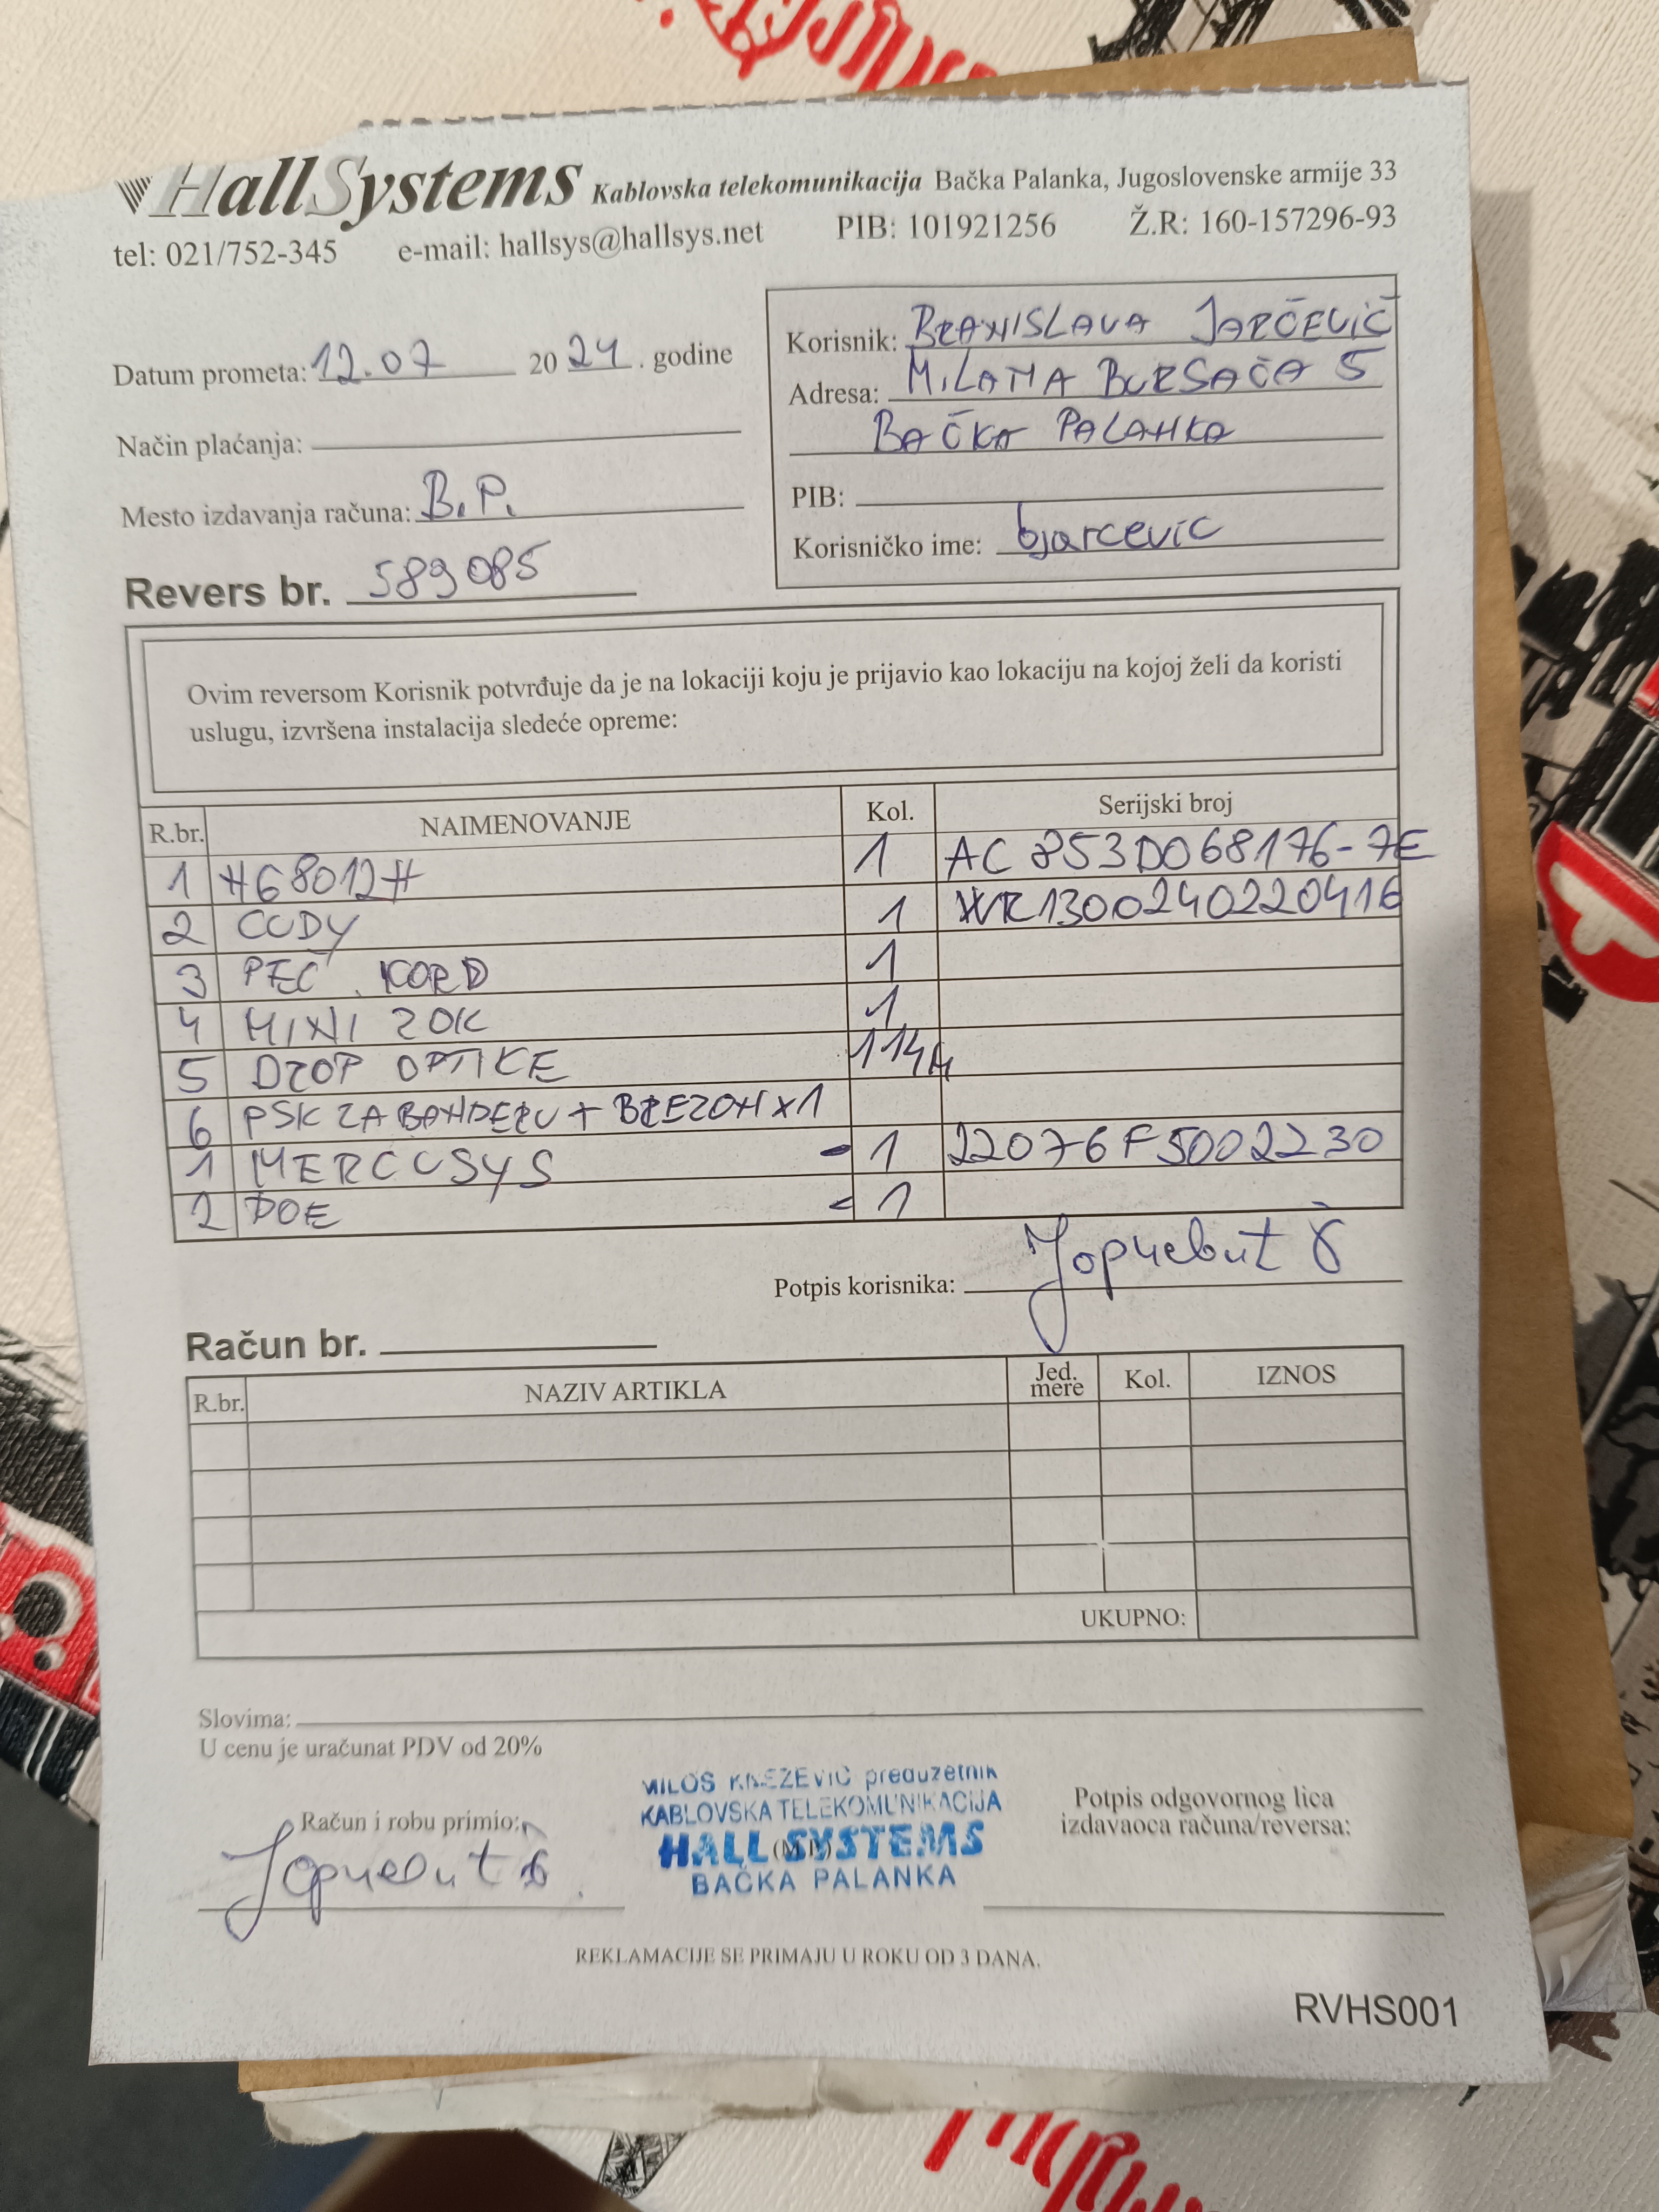 HallSystems Kablovska telekomunikacija Bačka Palanka, Jugoslovenske armije 33
tel: 021/752-345 e-mail: hallsys@hallsys.net PIB: 101921256 Ž.R: 160-157296-93
Datum prometa: 12.07 2024. godine
Način plaćanja:
Mesto izdavanja računa: B.P.
Revers br. 589085
Korisnik: BRANISLAVA JARČEVIĆ
Adresa: MILANA BURSAĆA 5
BAČKA PALANKA
PIB:
Korisničko ime: bjarcevic
Ovim reversom Korisnik potvrđuje da je na lokaciji koju je prijavio kao lokaciju na kojoj želi da koristi
uslugu, izvršena instalacija sledeće opreme:
R.br. NAIMENOVANJE Kol. Serijski broj
1 H68012H 1 AC853D068176-7E
2 CUDY 1 WR1300240220416
3 PEČ KORD 1
4 MINI ZOK 1
5 DROP OPTIKE 114M
6 PSK ZA BANDERU + BREZON x1
1 MERCUSYS - 1 22076F5002230
2 POE - 1
Potpis korisnika: Јарчевић Б
Račun br.
R.br. NAZIV ARTIKLA Jed. mere Kol. IZNOS
UKUPNO:
Slovima:
U cenu je uračunat PDV od 20%
Račun i robu primio:
Јарчевић Б
MILOŠ KNEŽEVIĆ preduzetnik
KABLOVSKA TELEKOMUNIKACIJA
HALL SYSTEMS
(M.P.)
BAČKA PALANKA
Potpis odgovornog lica
izdavaoca računa/reversa:
REKLAMACIJE SE PRIMAJU U ROKU OD 3 DANA.
RVHS001